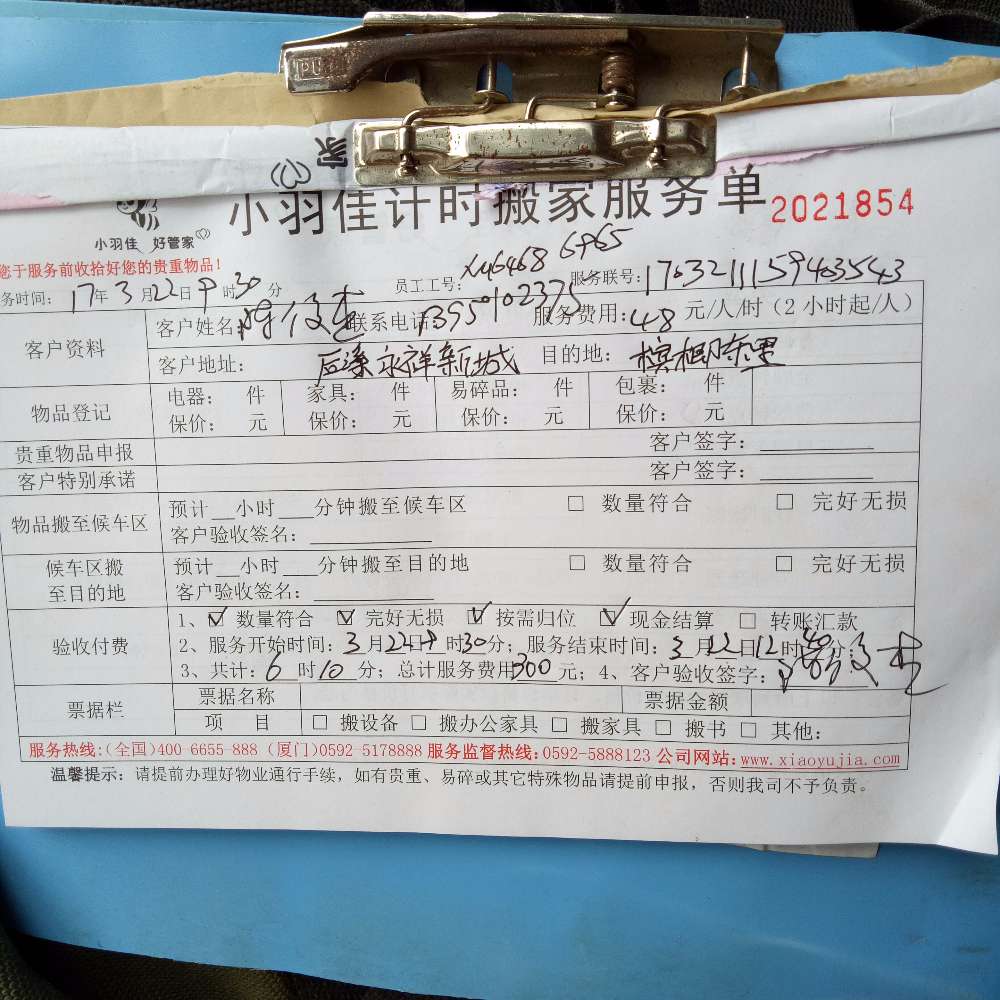 PU
家
小羽佳计时搬家服务单 2021854
小羽佳 好管家
您于服务前收拾好您的贵重物品!
务时间: 17年3月22日9时30分 员工工号: xm6468 6965 服务联号: 170321115943543
客户资料 客户姓名: 联系电话: 13950102375 服务费用: 48 元/人/时 (2小时起/人)
客户地址: 后溪永祥新城 目的地: 槟榔东里
物品登记 电器: 件 家具: 件 易碎品: 件 包裹: 件
保价: 元 保价: 元 保价: 元 保价: 元
贵重物品申报 客户签字:
客户特别承诺 客户签字:
物品搬至候车区 预计__小时___分钟搬至候车区 □ 数量符合 □ 完好无损
客户验收签名:
候车区搬至目的地 预计__小时___分钟搬至目的地 □ 数量符合 □ 完好无损
客户验收签名:
验收付费 1、☑ 数量符合 ☑ 完好无损 ☑ 按需归位 ☑ 现金结算 □ 转账汇款
2、服务开始时间: 3月22日9时30分; 服务结束时间: 3月22日12时40分;
3、共计: 6时10分; 总计服务费用300元; 4、客户验收签字:
票据栏 票据名称 票据金额
项 目 □ 搬设备 □ 搬办公家具 □ 搬家具 □ 搬书 □ 其他:
服务热线:(全国)400-6655-888 (厦门)0592-5178888 服务监督热线:0592-5888123 公司网站:www.xiaoyujia.com
温馨提示: 请提前办理好物业通行手续, 如有贵重、易碎或其它特殊物品请提前申报, 否则我司不予负责。